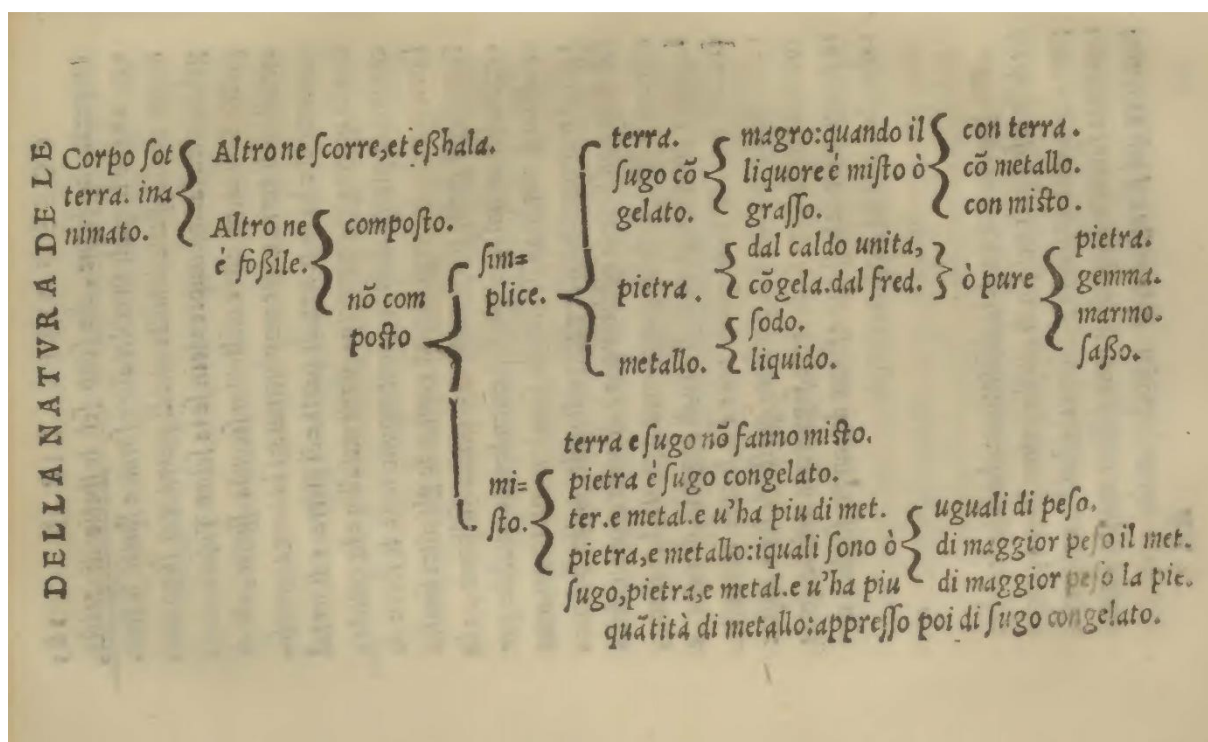 DELLA NATVRA DELE
Corpo ſot
terra. ina
nimato.
Altro ne ſcorre, et eßhala.
Altro ne
è foßile.
compoſto.
nõ com
poſto
ſim=
plice.
terra.
ſugo cõ
gelato.
magro: quando il
liquore è miſto ò
graſſo.
con terra.
cõ metallo.
con miſto.
pietra.
dal caldo unita,
cõgela. dal fred.
ò pure
pietra.
gemma.
marmo.
ſaßo.
metallo.
ſodo.
liquido.
mi=
ſto.
terra e ſugo nõ fanno miſto.
pietra è ſugo congelato.
ter. e metal. e u'ha piu di met.
pietra, e metallo: iquali ſono ò
uguali di peſo.
di maggior peſo il met.
di maggior peſo la pie.
ſugo, pietra, e metal. e u'ha piu
quãtità di metallo: appreſſo poi di ſugo congelato.